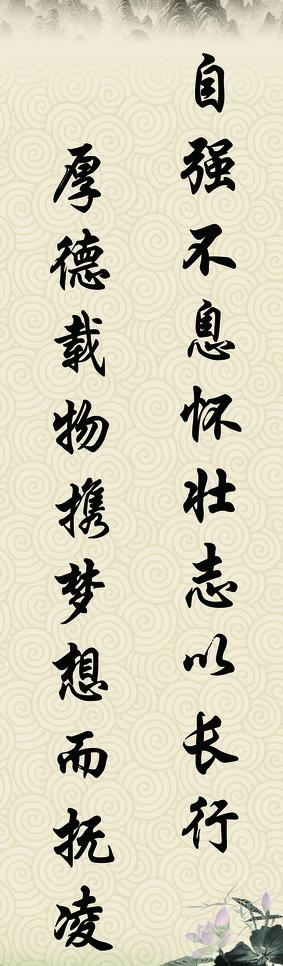 自强不息怀壮志以长行
厚德载物携梦想而抚凌